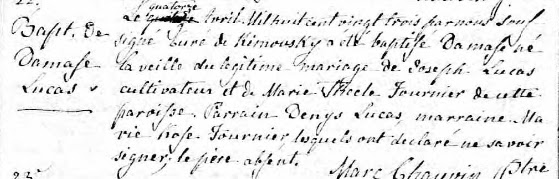 22.
Bapt. de
Damase
Lucas
quatorze
Le Avril Mil huit cent vingt trois par nous sous
signé Curé de Rimousky a été baptisé Damase né
la veille du légitime mariage de Joseph Lucas
cultivateur et de Marie Thecle Fournier de cette
paroisse. Parrain Denys Lucas, marraine Ma
rie Rose Fournier, lesquels ont declaré ne savoir
signer, le père absent.
Marc Chauvin Ptre
23.